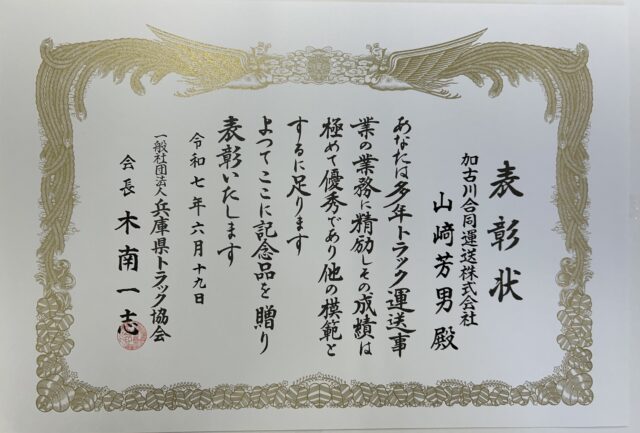 表彰状
加古川合同運送株式会社
山﨑芳男殿
あなたは多年トラック運送事
業の業務に精励しその成績は
極めて優秀であり他の模範と
するに足ります
よつてここに記念品を贈り
表彰いたします
令和七年六月十九日
一般社団法人兵庫県トラック協会
会長木南一志